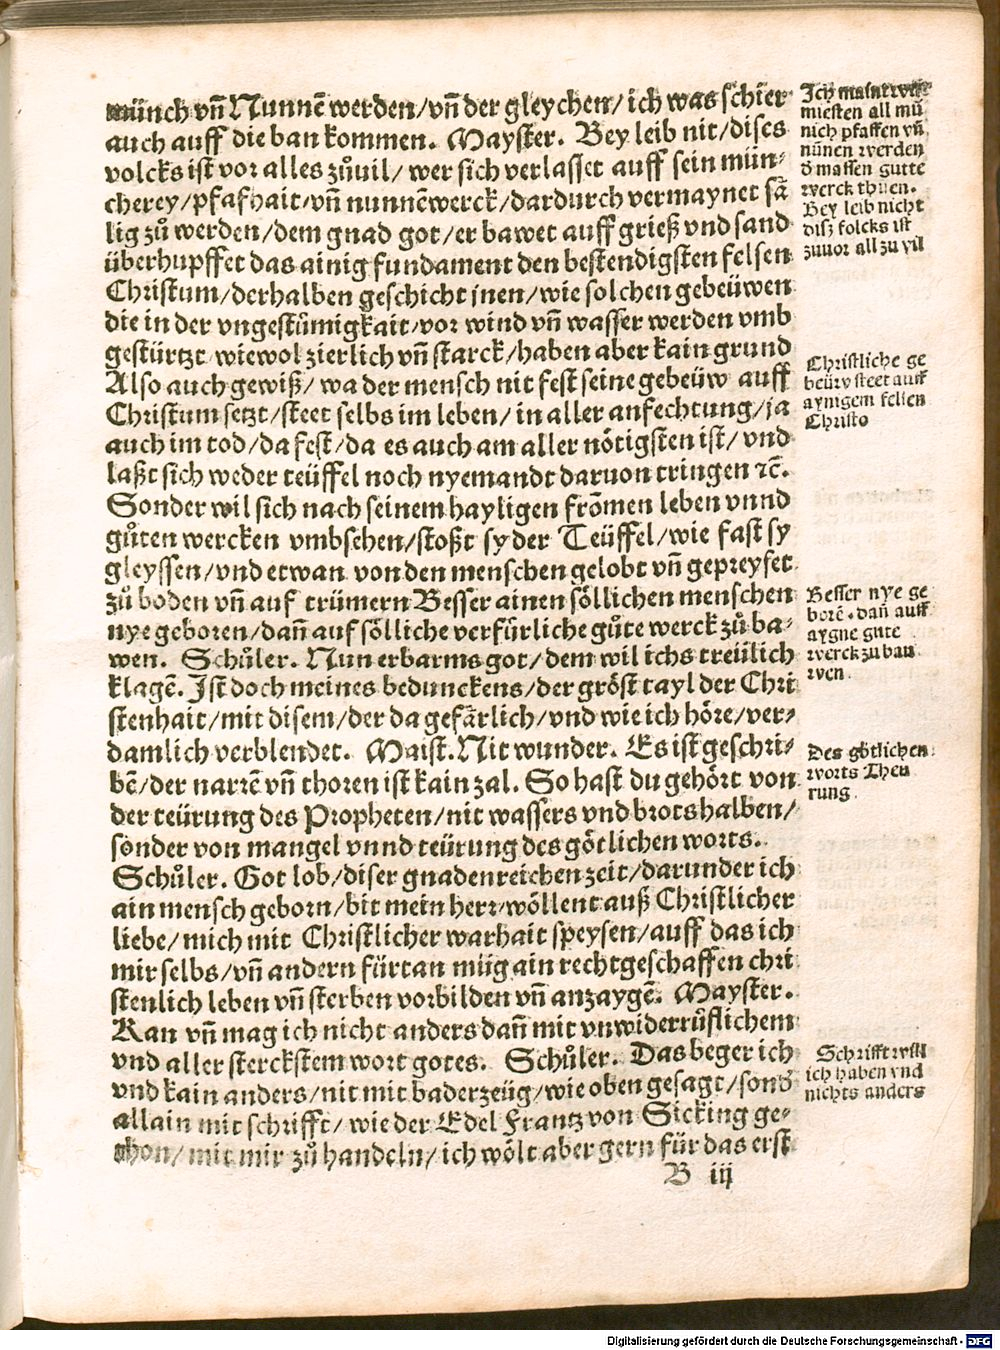 münch vñ Nunnē werden/ vñ der gleychen/ ich was schier
auch auff die ban kommen. Mayster. Bey leib nit/ dises
volcks ist vor alles zůuil/ wer sich verlasset auff sein mün-
cherey/ pfafhait/ vñ nunnēwerck/ dardurch vermaynet sā
lig zů werden/ dem gnad got/ er bawet auff grieß vnd sand
überhupffet das ainig fundament den bestendigsten felsen
Christum/ derhalben geschicht jnen/ wie solchen gebeüwen
die in der vngestůmigkait/ vor wind vñ wasser werden vmb
gestürtzt wiewol zierlich vñ starck/ haben aber kain grund
Also auch gewiß/ wa der mensch nit fest seine gebeüw auff
Christum setzt/ steet selbs im leben/ in aller anfechtung/ ja
auch im tod/ da fest/ da es auch am aller nötigsten ist/ vnd
laßt sich weder teüffel noch nyemandt daruon tringen ꝛc̄.
Sonder wil sich nach seinem hayligen frōmen leben vnnd
gůten wercken vmbsehen/ stoßt sy der Teüffel/ wie fast sy
gleyssen/ vnd etwan von den menschen gelobt vñ gepreyset
zů boden vñ auf trümern Besser ainen söllichen menschen
nye geboren/ dañ auf sölliche verfürliche gůte werck zů ba-
wen. Schůler. Nun erbarms got/ dem wil ichs treülich
klagē. Jst doch meines bedunckens/ der gröst tayl der Chri
stenhait/ mit disem/ der da gefärlich/ vnd wie ich höre/ ver-
damlich verblendet. Maist. Nit wunder. Es ist geschri-
bē/ der narrē vñ thoren ist kain zal. So hast du gehört von
der teürung des Propheten/ nit wassers vnd brots halben/
sonder von mangel vnnd teürung des götlichen worts.
Schůler. Got lob/ diser gnadenreichen zeit/ darunder ich
ain mensch geborn/ bit mein herr/ wöllent auß Christlicher
liebe/ mich mit Christlicher warhait speysen/ auff das ich
mir selbs/ vñ andern fürtan müg ain rechtgeschaffen chri
stenlich leben vñ sterben vorbilden vñ anzaygē. Mayster.
Kan vñ mag ich nicht anders dañ mit vnwiderrůflichem
vnd aller sterckstem wort gotes. Schůler. Das beger ich
vnd kain anders/ nit mit baderzeüg/ wie oben gesagt/ sonđ
allain mit schrifft/ wie der Edel Frantz von Sicking ge-
thon/ mit mir zů handeln/ ich wölt aber gern für das erst
B iij
Jch maint wir
miesten all mü
nich pfaffen vñ
nünen werden
đ massen gutte
werck thuen.
Bey leib nicht
disz folcks ist
zuuor all zu vil
Christliche ge
beüw steet auff
aynigem felsen
Christo
Besser nye ge
borē. dañ auff
aygne gute
werck zu bau
wen
Des götlichen
worts Theu
rung
Schrifft will
ich haben vnd
nichts anders
Digitalisierung gefördert durch die Deutsche Forschungsgemeinschaft - DFG